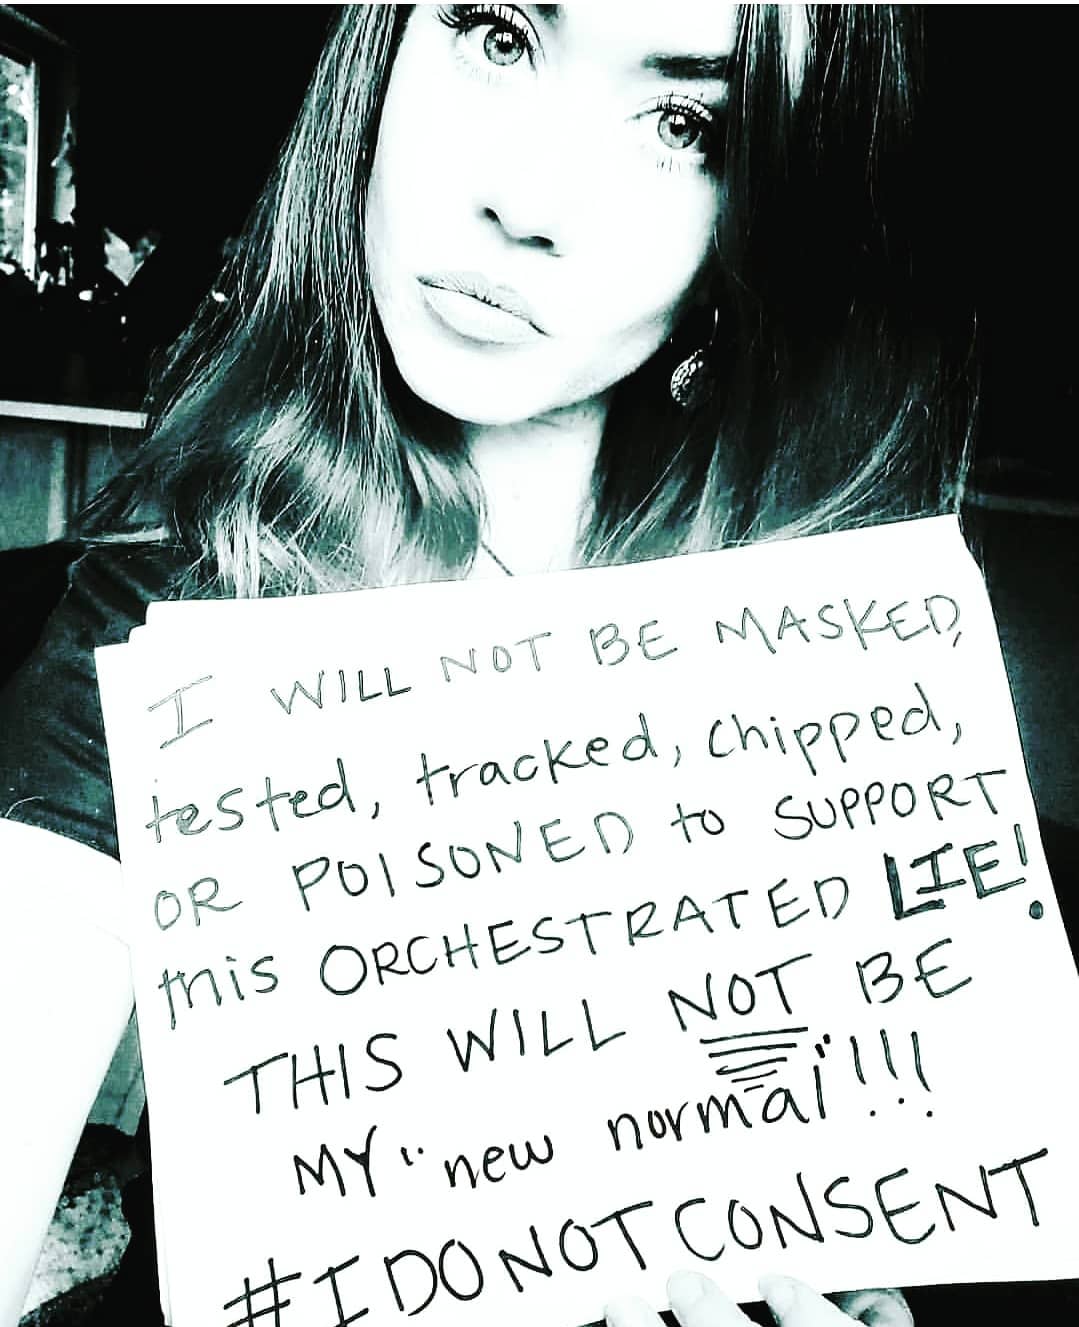 I WILL NOT BE MASKED,
tested, tracked, chipped,
OR POISONED to SUPPORT
this ORCHESTRATED LIE!
THIS WILL NOT BE
MY "new normal"!!!
#IDONOTCONSENT